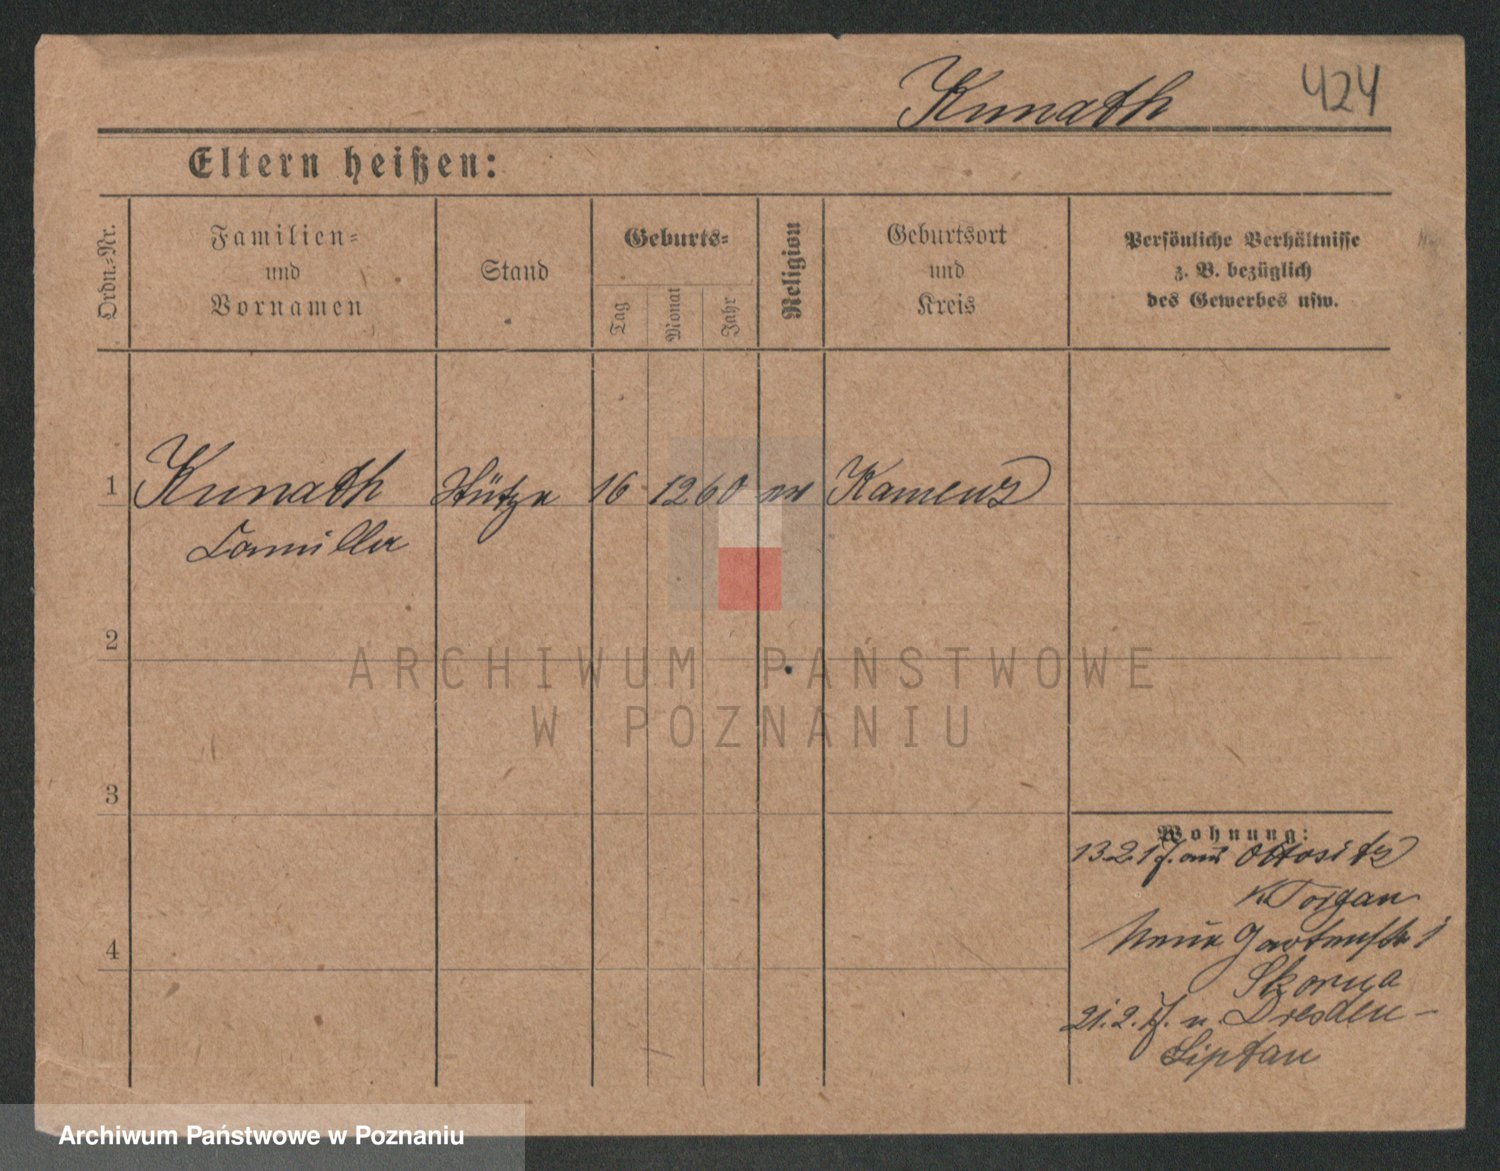 Kunath 424
Eltern heißen:
Ordn.-Nr.
Familien=
und
Vornamen
Stand
Geburts=
Tag
Monat
Jahr
Religion
Geburtsort
und
Kreis
Persönliche Verhältnisse
z. B. bezüglich
des Gewerbes usw.
1 Kunath Stütze 16 12 60 ev Kamenz
Camilla
2
3
4
Wohnung:
13.2.17. aus
K Torgau
Neue Gartenstr 1
21.2.17. n. Dresden-
ARCHIWUM PAŃSTWOWE
W POZNANIU
Archiwum Państwowe w Poznaniu